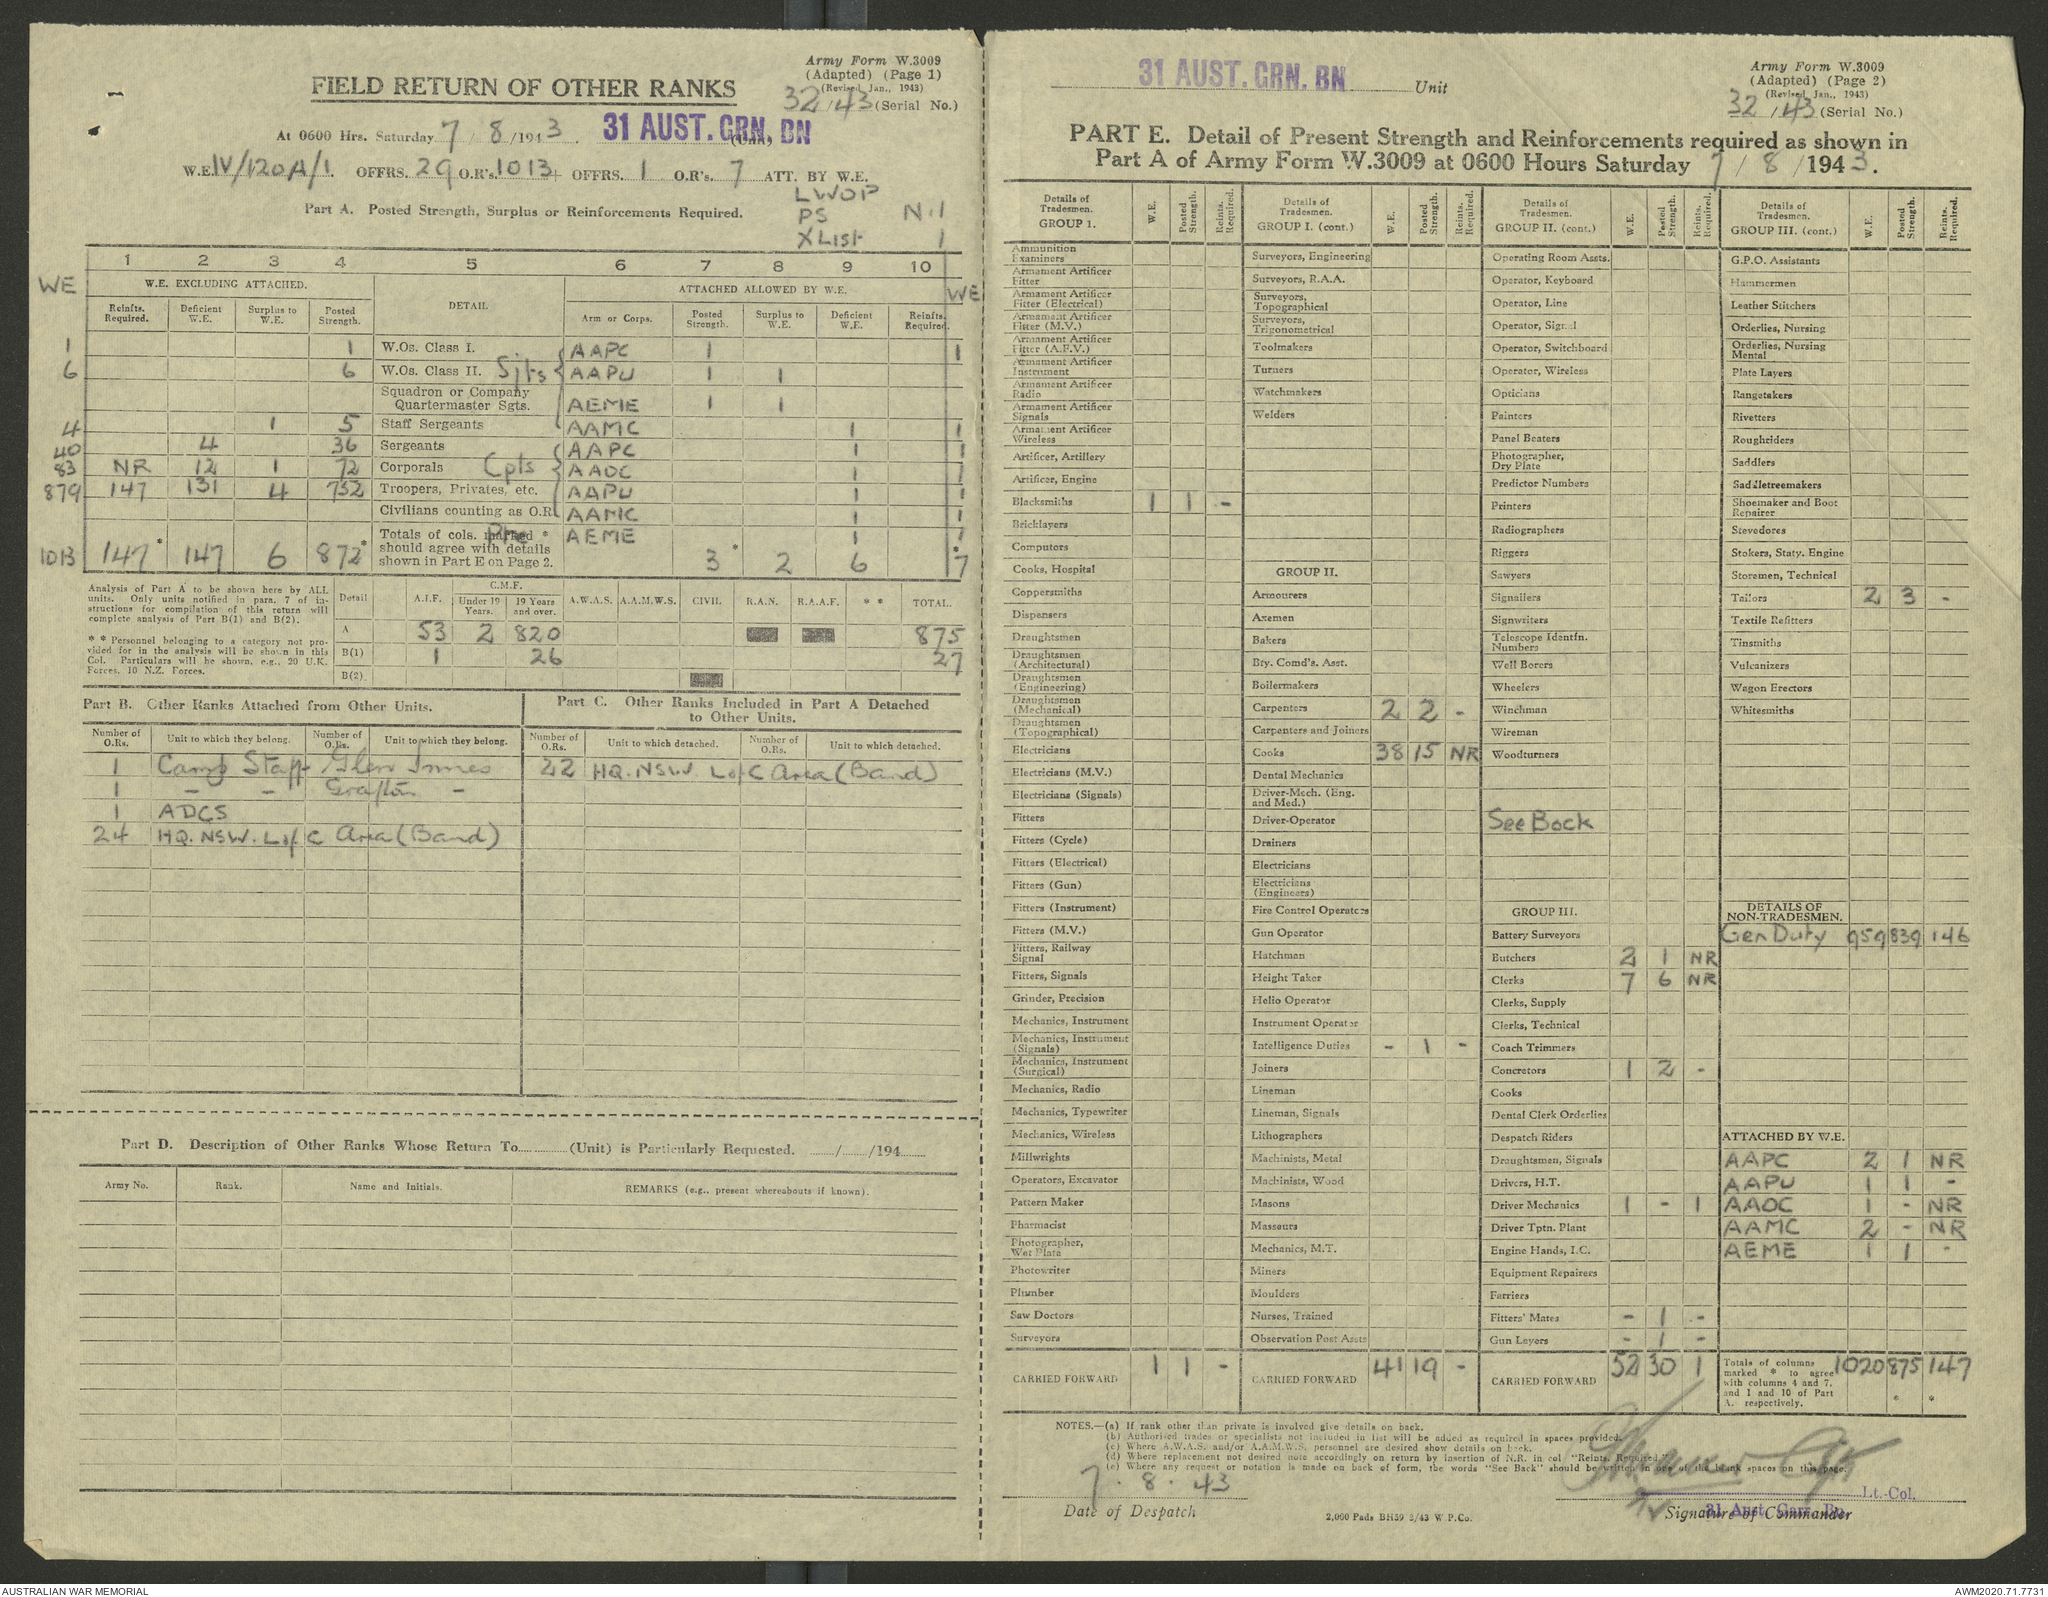 Army Form W.3009
(Adapted) (Page 1)
(Revised Jan., 1943)
32/43 (Serial No.)
FIELD RETURN OF OTHER RANKS
At 0600 Hrs. Saturday 7/8/1943. 31 AUST. GRN. BN (Unit)
W.E. IV/120A/1. OFFRS. 29 O.R's. 1013 + OFFRS. 1 O.R's. 7 ATT. BY W.E.
LWOP
Part A. Posted Strength, Surplus or Reinforcements Required.
PS N.1
X List 1
1 2 3 4 5 6 7 8 9 10
WE W.E. EXCLUDING ATTACHED. DETAIL ATTACHED ALLOWED BY W.E. WE
Reinfts. Required. Deficient W.E. Surplus to W.E. Posted Strength. Arm or Corps. Posted Strength. Surplus to W.E. Deficient W.E. Reinfts. Required.
1 1 W.Os. Class I. AAPC 1 1
6 6 W.Os. Class II. Sjts AAPU 1 1
Squadron or Company Quartermaster Sgts. AEME 1 1
4 1 5 Staff Sergeants AAMC 1 1
40 4 36 Sergeants AAPC 1 1
83 NR 12 1 72 Corporals Cpls AAOC 1 1
879 147 131 4 752 Troopers, Privates, etc. AAPU 1 1
Civilians counting as O.R. AAMC 1 1
Totals of cols. marked * Pte AEME 1 1
should agree with details
shown in Part E on Page 2.
1013 147* 147 6 872* 3* 2 6 *7
Analysis of Part A to be shown here by ALL
units. Only units notified in para. 7 of in-
structions for compilation of this return will
complete analysis of Part B(1) and B(2).
* * Personnel belonging to a category not pro-
vided for in the analysis will be shown in this
Col. Particulars will be shown, e.g., 20 U.K.
Forces, 10 N.Z. Forces.
C.M.F.
Detail A.I.F. Under 19 Years. 19 Years and over. A.W.A.S. A.A.M.W.S. CIVIL R.A.N. R.A.A.F. * * TOTAL.
A 53 2 820 875
B(1) 1 26 27
B(2)
Part B. Other Ranks Attached from Other Units.
Number of O.Rs. Unit to which they belong. Number of O.Rs. Unit to which they belong.
1 Camp Staff Glen Innes
1 - - Grafton -
1 ADCS
24 HQ. NSW. L of C Area (Band)
Part C. Other Ranks Included in Part A Detached
to Other Units.
Number of O.Rs. Unit to which detached. Number of O.Rs. Unit to which detached.
22 HQ. NSW. L of C Area (Band)
Part D. Description of Other Ranks Whose Return To............(Unit) is Particularly Requested. ....../....../194......
Army No. Rank. Name and Initials. REMARKS (e.g., present whereabouts if known).
31 AUST. GRN. BN Unit
Army Form W.3009
(Adapted) (Page 2)
(Revised Jan., 1943)
32/43 (Serial No.)
PART E. Detail of Present Strength and Reinforcements required as shown in
Part A of Army Form W.3009 at 0600 Hours Saturday 7/8/1943.
Details of Tradesmen. GROUP I. W.E. Posted Strength. Reints. Required.
Ammunition Examiners
Armament Artificer Fitter
Armament Artificer Fitter (Electrical)
Armament Artificer Fitter (M.V.)
Armament Artificer Fitter (A.F.V.)
Armament Artificer Instrument
Armament Artificer Radio
Armament Artificer Signals
Armament Artificer Wireless
Artificer, Artillery
Artificer, Engine
Blacksmiths 1 1 -
Bricklayers
Computors
Cooks, Hospital
Coppersmiths
Dispensers
Draughtsmen
Draughtsmen (Architectural)
Draughtsmen (Engineering)
Draughtsmen (Mechanical)
Draughtsmen (Topographical)
Electricians
Electricians (M.V.)
Electricians (Signals)
Fitters
Fitters (Cycle)
Fitters (Electrical)
Fitters (Gun)
Fitters (Instrument)
Fitters (M.V.)
Fitters, Railway Signal
Fitters, Signals
Grinder, Precision
Mechanics, Instrument
Mechanics, Instrument (Signals)
Mechanics, Instrument (Surgical)
Mechanics, Radio
Mechanics, Typewriter
Mechanics, Wireless
Millwrights
Operators, Excavator
Pattern Maker
Pharmacist
Photographer, Wet Plate
Photowriter
Plumber
Saw Doctors
Surveyors
CARRIED FORWARD 1 1 -
Details of Tradesmen. GROUP I. (cont.) W.E. Posted Strength. Reints. Required.
Surveyors, Engineering
Surveyors, R.A.A.
Surveyors, Topographical
Surveyors, Trigonometrical
Toolmakers
Turners
Watchmakers
Welders
GROUP II.
Armourers
Axemen
Bakers
Bty. Comd's. Asst.
Boilermakers
Carpenters 2 2 -
Carpenters and Joiners
Cooks 38 15 NR
Dental Mechanics
Driver-Mech. (Eng. and Med.)
Driver-Operator
Drainers
Electricians
Electricians (Engineers)
Fire Control Operators
Gun Operator
Hatchman
Height Taker
Helio Operator
Instrument Operator
Intelligence Duties - 1 -
Joiners
Lineman
Lineman, Signals
Lithographers
Machinists, Metal
Machinists, Wood
Masons
Masseurs
Mechanics, M.T.
Miners
Moulders
Nurses, Trained
Observation Post Assts
CARRIED FORWARD 41 19 -
Details of Tradesmen. GROUP II. (cont.) W.E. Posted Strength. Reints. Required.
Operating Room Assts.
Operator, Keyboard
Operator, Line
Operator, Signal
Operator, Switchboard
Operator, Wireless
Opticians
Painters
Panel Beaters
Photographer, Dry Plate
Predictor Numbers
Printers
Radiographers
Riggers
Sawyers
Signallers
Signwriters
Telescope Identfn. Numbers
Well Borers
Wheelers
Winchman
Wireman
Woodturners
See Back
GROUP III.
Battery Surveyors
Butchers 2 1 NR
Clerks 7 6 NR
Clerks, Supply
Clerks, Technical
Coach Trimmers
Concretors 1 2 -
Cooks
Dental Clerk Orderlies
Despatch Riders
Draughtsmen, Signals
Drivers, H.T.
Driver Mechanics 1 - 1
Driver Tptn. Plant
Engine Hands, I.C.
Equipment Repairers
Farriers
Fitters' Mates - 1 -
Gun Layers - 1 -
CARRIED FORWARD 52 30 1
Details of Tradesmen. GROUP III. (cont.) W.E. Posted Strength. Reints. Required.
G.P.O. Assistants
Hammermen
Leather Stitchers
Orderlies, Nursing
Orderlies, Nursing Mental
Plate Layers
Rangetakers
Rivetters
Roughriders
Saddlers
Saddletreemakers
Shoemaker and Boot Repairer
Stevedores
Stokers, Staty. Engine
Storemen, Technical
Tailors 2 3 -
Textile Refitters
Tinsmiths
Vulcanizers
Wagon Erectors
Whitesmiths
DETAILS OF NON-TRADESMEN.
Gen Duty 959 839 146
ATTACHED BY W.E.
AAPC 2 1 NR
AAPU 1 1 -
AAOC 1 - NR
AAMC 2 - NR
AEME 1 1 -
Totals of columns
marked * to agree
with columns 4 and 7,
and 1 and 10 of Part
A. respectively.
1020 875* 147*
NOTES.—(a) If rank other than private is involved give details on back.
(b) Authorised trades or specialists not included in list will be added as required in spaces provided.
(c) Where A.W.A.S. and/or A.A.M.W.S. personnel are desired show details on back.
(d) Where replacement not desired note accordingly on return by insertion of N.R. in col "Reints. Required."
(e) Where any request or notation is made on back of form, the words "See Back" should be written in one of the blank spaces on this page.
7.8.43
Date of Despatch
2,000 Pads BH59 3/43 W.P.Co.
Lt.-Col.
31 Aust. Garr. Bn.
Signature of Commander
AUSTRALIAN WAR MEMORIAL
AWM2020.71.7731